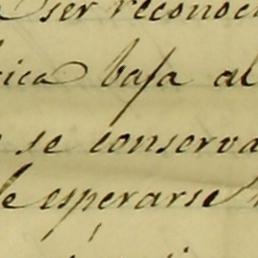 ser reconoc
rica baja al
se conserva
de esperarse